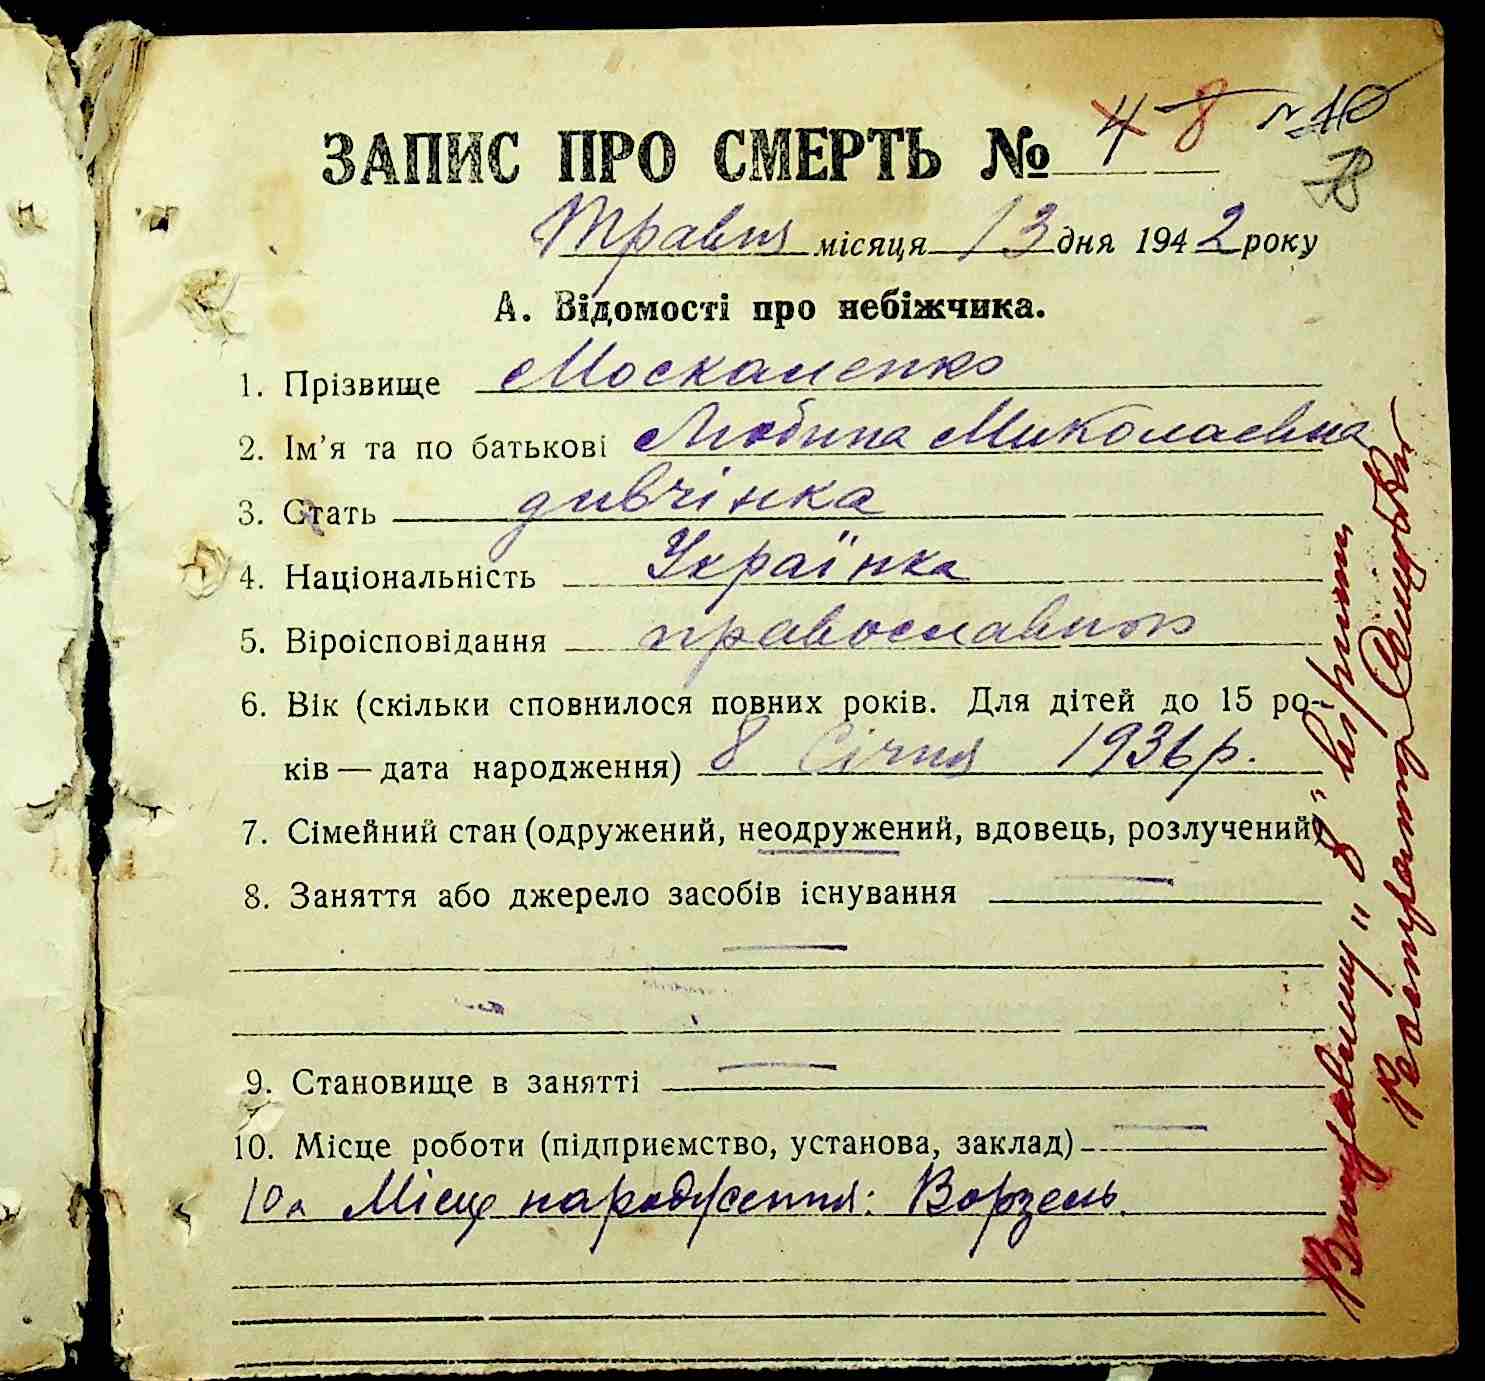 ЗАПИС ПРО СМЕРТЬ № 4 8 №10
Травня місяця 13 дня 1942 року
А. Відомості про небіжчика.
1. Прізвище Москаленко
2. Ім'я та по батькові Любина Миколаевна
3. Стать дивчінка
4. Національність Українка
5. Віроісповідання православною
6. Вік (скільки сповнилося повних років. Для дітей до 15 ро-
ків — дата народження) 8 Січня 1936 р.
7. Сімейний стан (одружений, неодружений, вдовець, розлучений)
8. Заняття або джерело засобів існування —
—
9. Становище в занятті —
10. Місце роботи (підприємство, установа, заклад) —
10а Місце народження: Ворзель.
"8" вірити